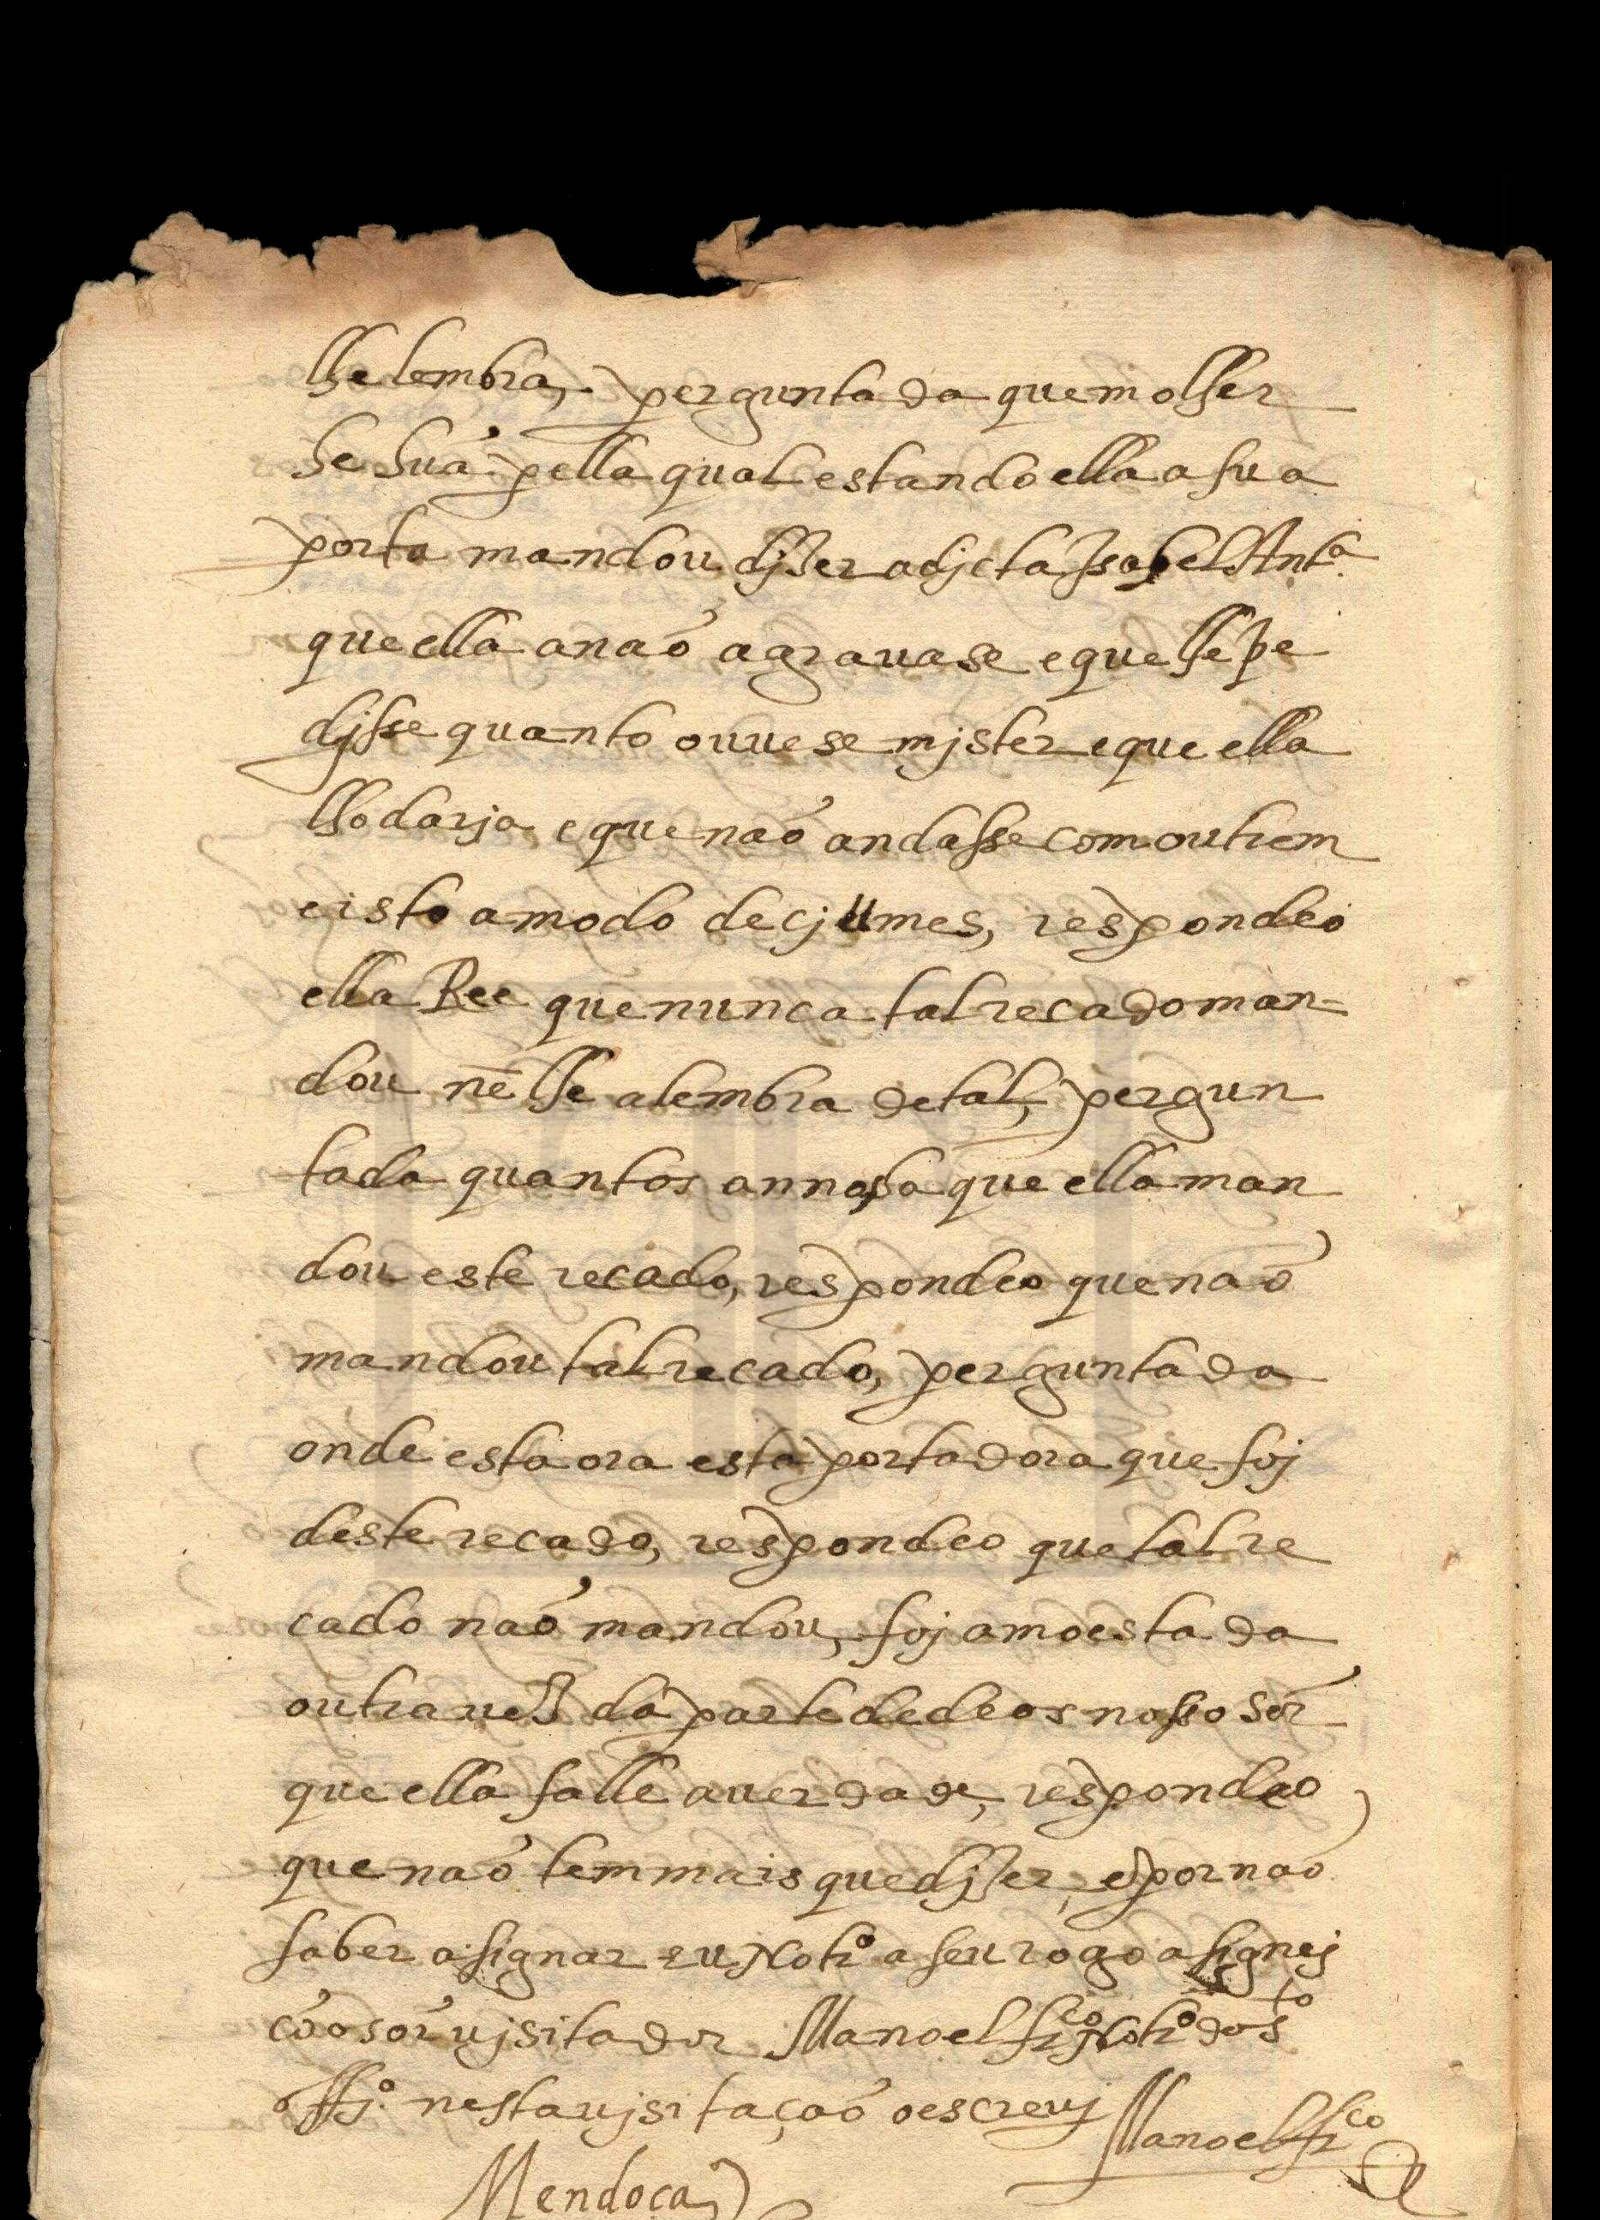 lhe lembra, perguntada que molher
he hũa pella qual estando ella a sua
porta mandou dizer a djcta Isabel Ant.ª
que ella a não agravase e que lhe pe
djsse quanto ouuese mjster e que ella
lho darja e que não andasse com outrem
e isto a modo de cjumes, respondeo
ella Ree que nunca tal recado man-
dou nẽ lhe alembra de tal, pergun
tada quantos annos ha que ella man
dou este recado, respondeo que não
mandou tal recado, perguntada
onde esta ora esta portadora que foj
deste recado, respondeo que tal re
cado não mandou, foj amoestada
outra uez da parte de deos nosso sõr
que ella falle a uerdade, respondeo
que não tem mais que djzer, e por não
saber asignar eu Notrº a seu rogo asignej
cõ o sõr ujsitador Manoel frco Notrº do sto
offjº nesta ujsitação o escreuj Manoel frco
Mendoça